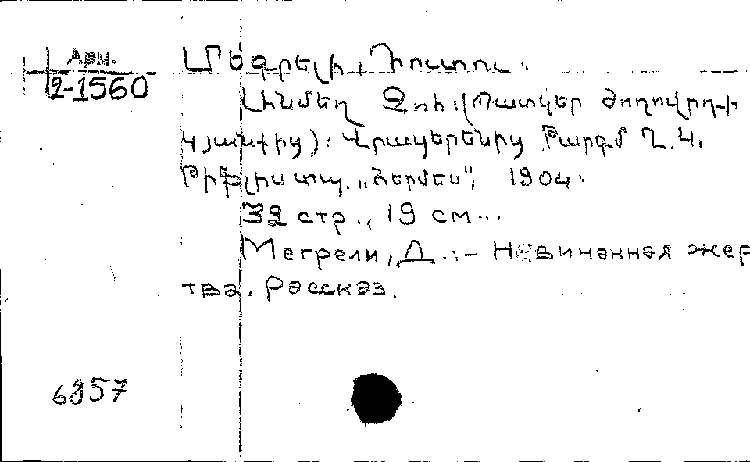 Арм.
2-1560
Մեգրելի, Դիտտու.
Անմեղ Զոհ. (Պատկեր ժողովրդի
կյանքից): Վրացերենից Թարգմ Ղ. Վ.
Թիֆլիս տպ. „Հերմես", 1904.
32 стр., 19 см...
Мегрели, Д. :- Невинанная жер
тва. Рассказ.
6957